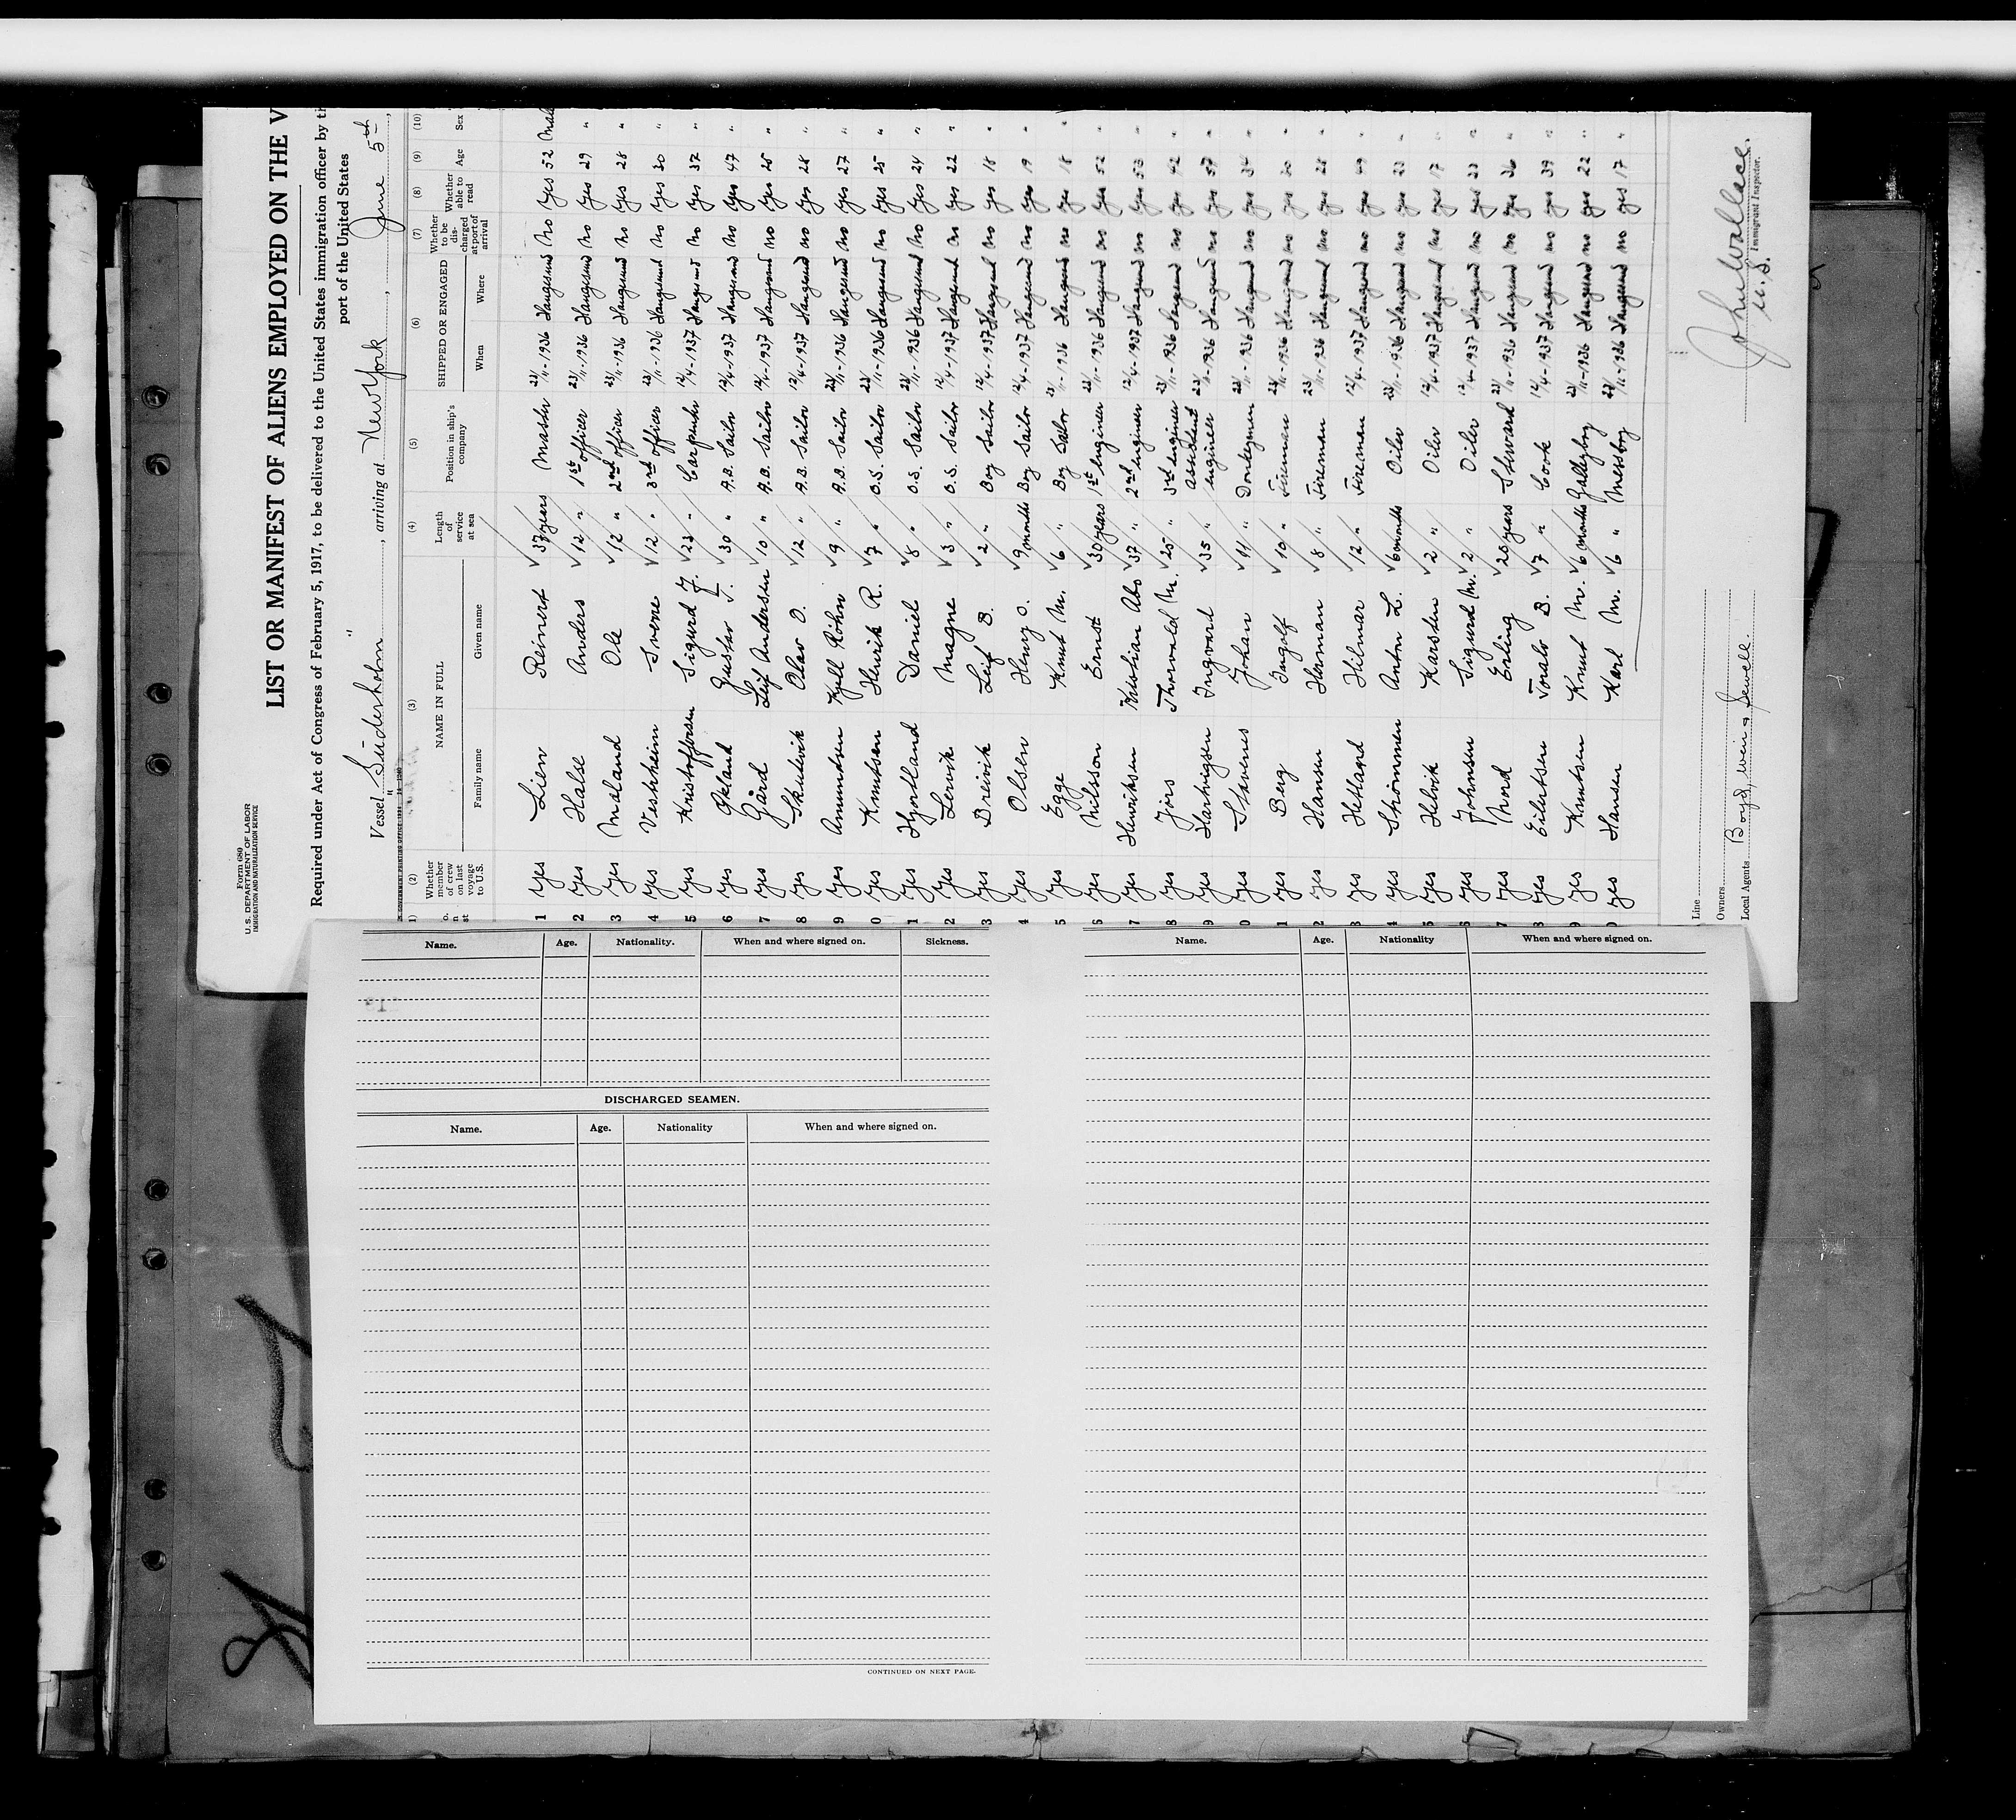 Form 689
U.S. DEPARTMENT OF LABOR
IMMIGRATION AND NATURALIZATION SERVICE
LIST OR MANIFEST OF ALIENS EMPLOYED ON THE V
Required under Act of Congress of February 5, 1917, to be delivered to the United States immigration officer by th
port of the United States
Vessel Süderholm", arriving at New York, June 5th,
(2) (3) (4) (5) (6) (7) (8) (9) (10)
Whether member of crew on last voyage to U.S. NAME IN FULL Family name Given name Length of service at sea Position in ship's company SHIPPED OR ENGAGED When Where Whether to be discharged at port of arrival Whether able to read Age Sex
1 Yes Lien Reinert 37 years Master 23/11-1936 Haugesund No Yes 52 Male
2 Yes Halse Anders 12 " 1st officer 23/11-1936 Haugesund No Yes 29 "
3 Yes Maland Ole 12 " 2nd officer 23/11-1936 Haugesund No Yes 28 "
4 Yes Vestheim Sverre 12 " 3rd officer 23/11-1936 Haugesund No Yes 30 "
5 Yes Kristoffersen Sigurd F. 23 " Carpenter 12/4-1937 Haugesund No Yes 37 "
6 Yes Økland Gustav T. 30 " A.B. Sailor 12/4-1937 Haugesund No Yes 47 "
7 Yes Gård Leif Andersen 10 " A.B. Sailor 12/4-1937 Haugesund No Yes 25 "
8 Yes Skulevik Olav O. 12 " A.B. Sailor 12/4-1937 Haugesund No Yes 28 "
9 Yes Amundsen Kjell Röhn 9 " A.B. Sailor 23/11-1936 Haugesund No Yes 27 "
0 Yes Knutsen Henrik R. 7 " O.S. Sailor 23/11-1936 Haugesund No Yes 25 "
1 Yes Hjortland Daniel 8 " O.S. Sailor 23/11-1936 Haugesund No Yes 24 "
2 Yes Lervik Magne 3 " O.S. Sailor 12/4-1937 Haugesund Yes 22 "
3 Yes Dreivik Leif B. 2 " Boy Sailor 12/4-1937 Haugesund No Yes 18 "
4 Yes Olsen Henry O. 9 months Boy Sailor 12/4-1937 Haugesund No Yes 19 "
5 Yes Egge Knut M. 6 " Boy Sailor 23/11-1936 Haugesund No Yes 18 "
6 Yes Nilsson Ernst 30 years 1st engineer 23/11-1936 Haugesund No Yes 52 "
7 Yes Henriksen Kristian Abs 37 " 2nd engineer 12/4-1937 Haugesund No Yes 53 "
8 Yes Jörs Thorvald M. 25 " 3rd engineer 23/11-1936 Haugesund No Yes 42 "
9 Yes Hartvigsen Ingvard 35 " assistent engineer 23/11-1936 Haugesund No Yes 57 "
0 Yes Stavnes Johan 11 " Donkeyman 23/11-1936 Haugesund No Yes 34 "
1 Yes Berg Ingolf 10 " Fireman 23/11-1936 Haugesund No Yes 30 "
2 Yes Hansen Herman 8 " Fireman 23/11-1936 Haugesund No Yes 28 "
3 Yes Hetland Hilmar 12 " Fireman 12/4-1937 Haugesund No Yes 49 "
4 Yes Strömmen Anton L. 6 months Oiler 23/11-1936 Haugesund No Yes 23 "
5 Yes Helvik Karsten 2 " Oiler 12/4-1937 Haugesund No Yes 17 "
6 Yes Johnsen Sigurd M. 2 " Oiler 12/4-1937 Haugesund No Yes 23 "
7 Yes Nord Erling 20 years Steward 23/11-1936 Haugesund No Yes 36 "
8 Yes Eilertsen Toralv B. 7 " Cook 12/4-1937 Haugesund No Yes 39 "
9 Yes Knutsen Knut M. 6 months Galleyboy 23/11-1936 Haugesund No Yes 22 "
0 Yes Hansen Karl M. 6 " Messboy 23/11-1936 Haugesund No Yes 17 "
Line
Owners
Local Agents Boyd, Weir & Sewell.
John Wallace.
Immigrant Inspector.
U.S.
Name. Age. Nationality. When and where signed on. Sickness.
DISCHARGED SEAMEN.
Name. Age. Nationality When and where signed on.
CONTINUED ON NEXT PAGE.
Name. Age. Nationality When and where signed on.